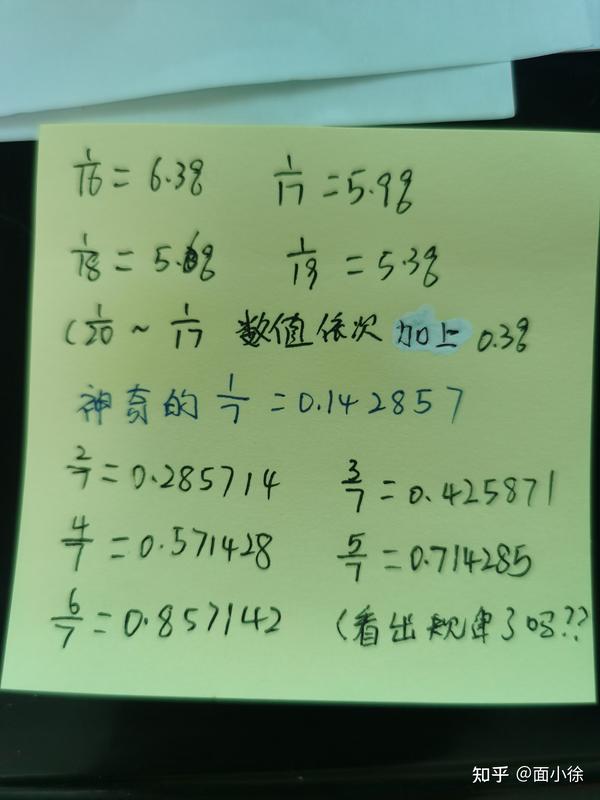 1/16 = 6.3% 1/17 = 5.9%
1/18 = 5.6% 1/19 = 5.3%
(1/20 ~ 1/17 数值依次加上 0.3%
神奇的 1/7 = 0.142857
2/7 = 0.285714 3/7 = 0.425871
4/7 = 0.571428 5/7 = 0.714285
6/7 = 0.857142 (看出规律了吗??
知乎 @面小徐